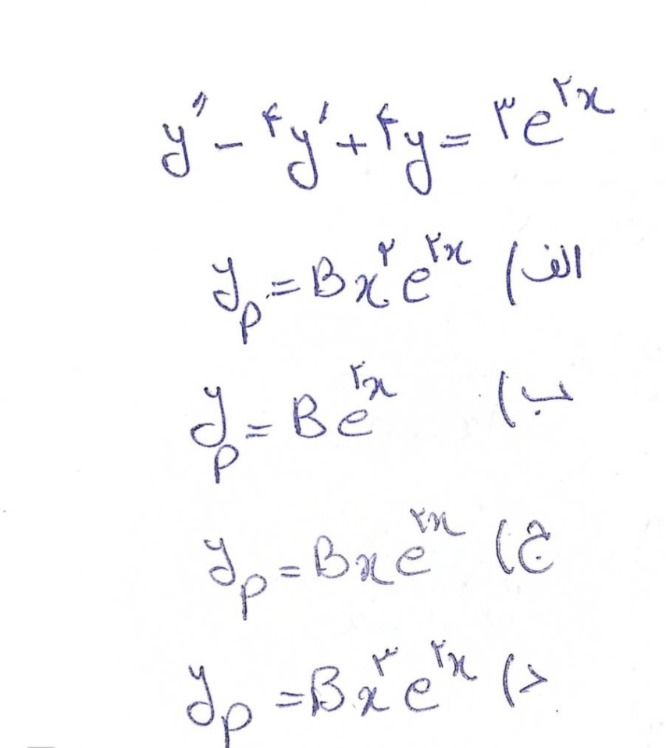 y″ - ۴y′ + ۴y = ۳e^۲x
الف) y_p = Bx^۲ e^۲x
ب) y_p = Be^۲x
ج) y_p = Bxe^۲x
د) y_p = Bx^۳ e^۲x